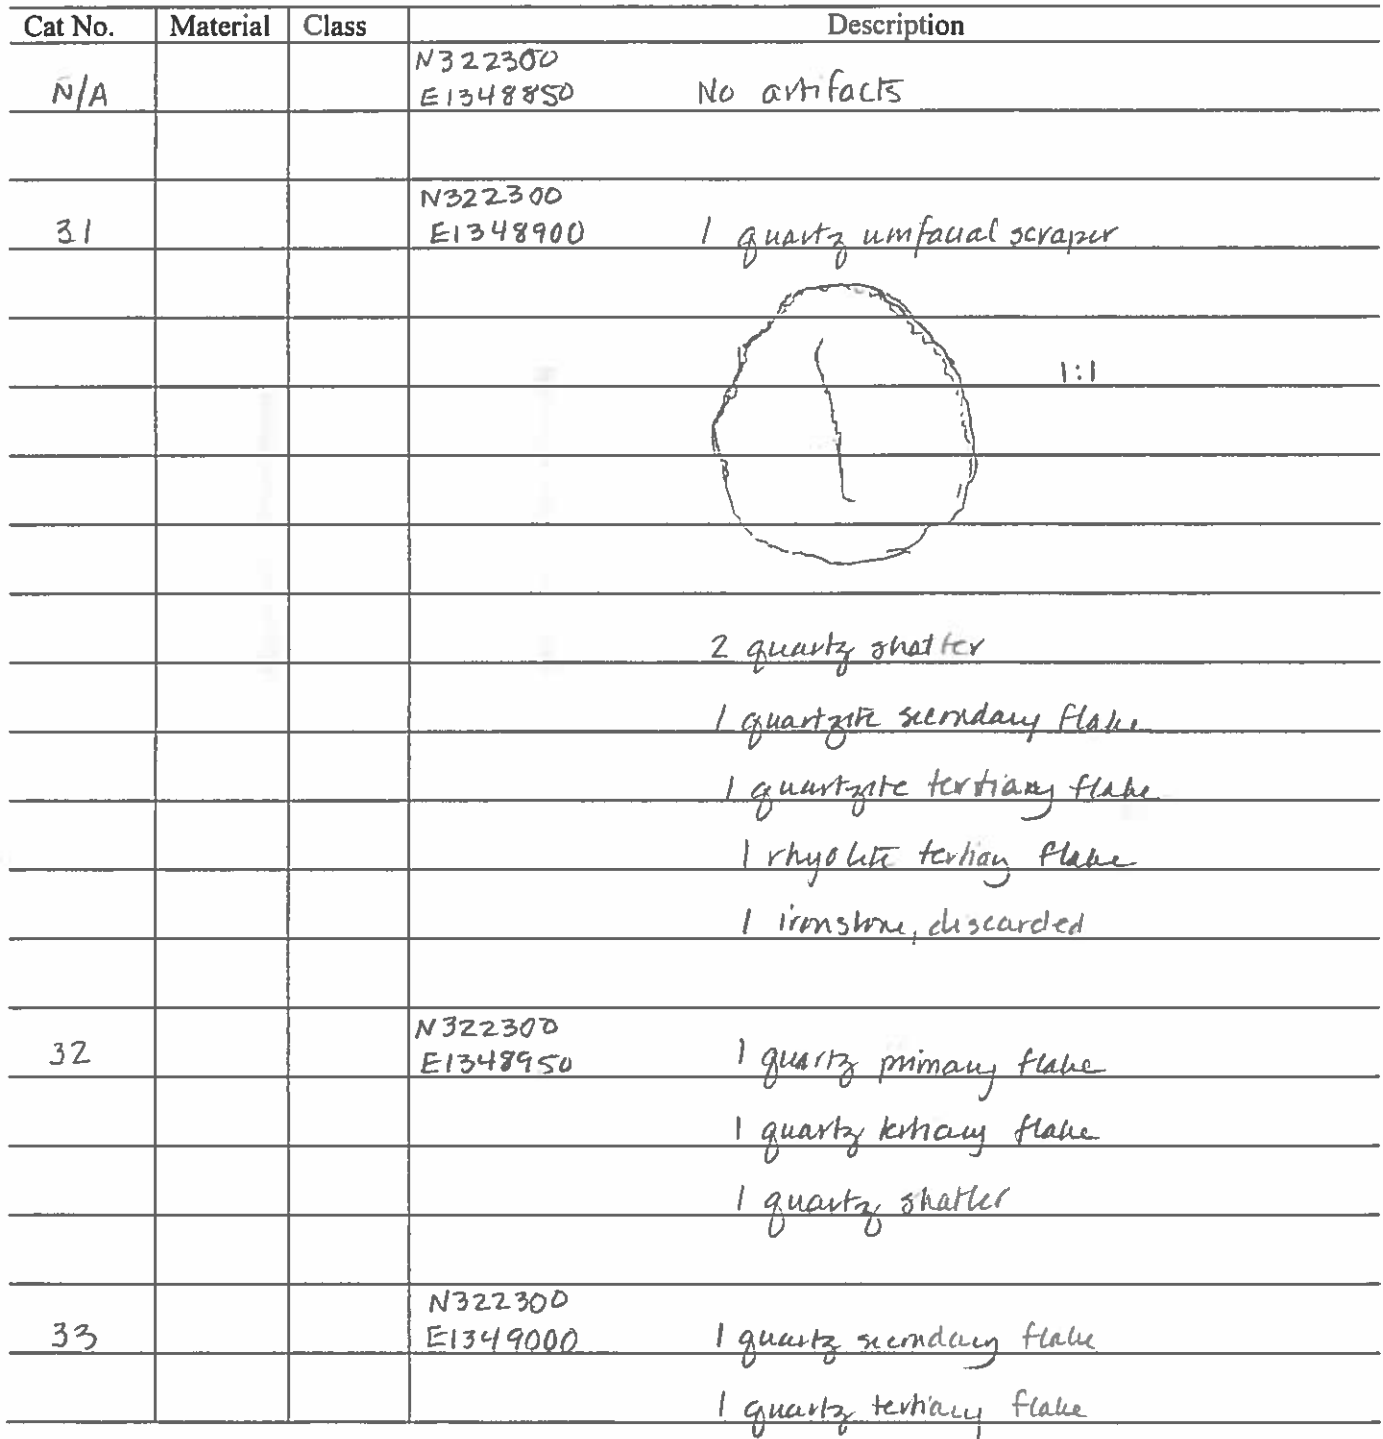 Cat No. Material Class Description
N322300
N/A E1348850 No artifacts
N322300
31 E1348900 1 quartz unifacial scraper
1:1
2 quartz shatter
1 quartzite secondary flake
1 quartzite tertiary flake
1 rhyolite tertiary flake
1 ironstone, discarded
N322300
32 E1348950 1 quartz primary flake
1 quartz tertiary flake
1 quartz shatter
N322300
33 E1349000 1 quartz secondary flake
1 quartz tertiary flake